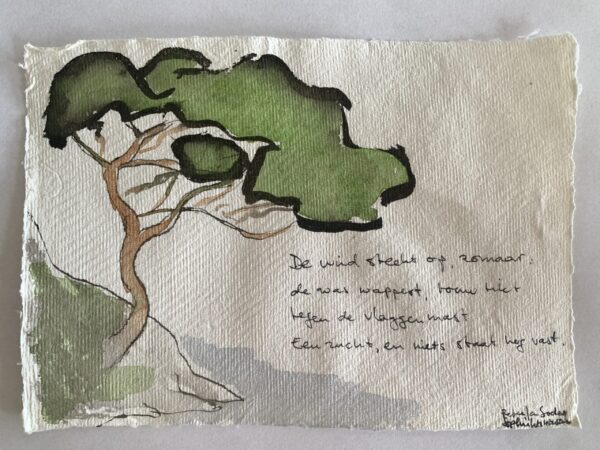 De wind steekt op, zomaar.
de was wappert, touw tiet
tegen de vlaggenmast
Een zucht, en niets staat nog vast.